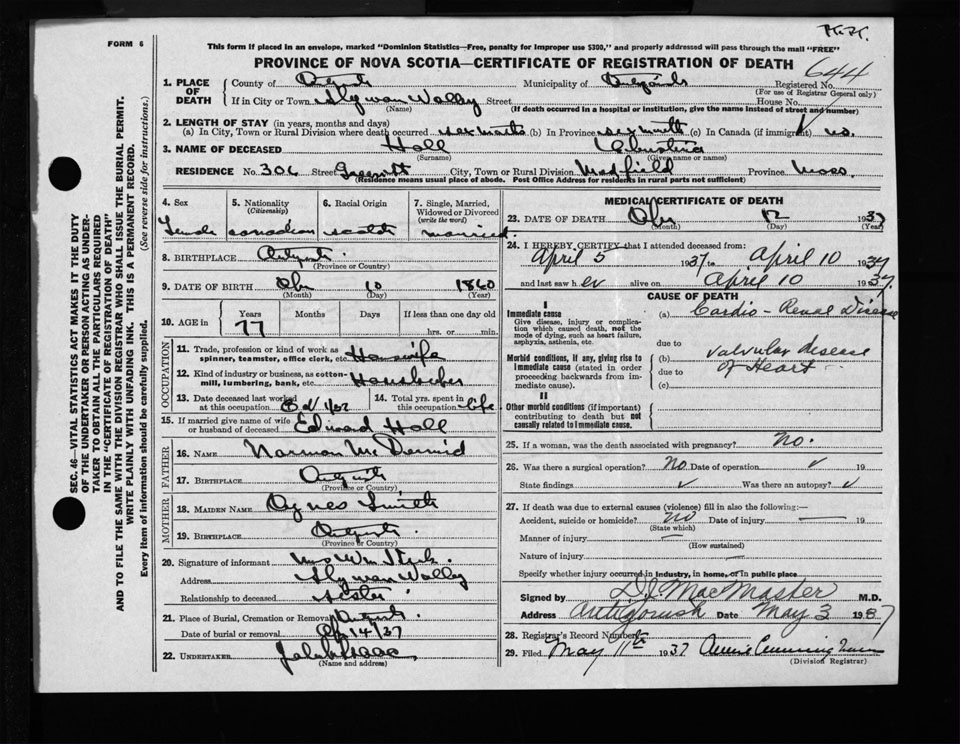 FORM 6
This form if placed in an envelope, marked "Dominion Statistics—Free, penalty for improper use $300," and properly addressed will pass through the mail "FREE"
PROVINCE OF NOVA SCOTIA—CERTIFICATE OF REGISTRATION OF DEATH
644
1. PLACE OF DEATH
County of Municipality of Registered No.
(For use of Registrar General only)
If in City or Town Street House No.
(Name) (If death occurred in a hospital or institution, give the name instead of street and number)
2. LENGTH OF STAY (in years, months and days)
(a) In City, Town or Rural Division where death occurred six months (b) In Province six months (c) In Canada (if immigrant) no.
3. NAME OF DECEASED Hall Christina
(Surname) (Given name or names)
RESIDENCE No. 306 Street City, Town or Rural Division Medfield Province Mass.
(Residence means usual place of abode. Post Office Address for residents in rural parts not sufficient)
4. Sex
Female
5. Nationality
(Citizenship)
canadian
6. Racial Origin
scotch
7. Single, Married, Widowed or Divorced
(write the word)
married
8. BIRTHPLACE
(Province or Country)
9. DATE OF BIRTH 10 1860
(Month) (Day) (Year)
10. AGE in Years Months Days If less than one day
77 hrs. or min.
OCCUPATION
11. Trade, profession or kind of work as spinner, teamster, office clerk, etc. Housewife
12. Kind of industry or business, as cotton-mill, lumbering, bank, etc.
13. Date deceased last worked at this occupation
14. Total yrs. spent in this occupation life
15. If married give name of wife or husband of deceased Edward Hall
FATHER
16. NAME Norman McDermid
17. BIRTHPLACE
(Province or Country)
MOTHER
18. MAIDEN NAME Agnes Smith
19. BIRTHPLACE
(Province or Country)
20. Signature of informant Mrs Wm
Address
Relationship to deceased sister
21. Place of Burial, Cremation or Removal
Date of burial or removal Ap 14/37
22. UNDERTAKER
(Name and address)
MEDICAL CERTIFICATE OF DEATH
23. DATE OF DEATH 12 1937
(Month) (Day) (Year)
24. I HEREBY CERTIFY that I attended deceased from:
April 5 1937 to April 10 1937
and last saw her alive on April 10 1937.
CAUSE OF DEATH
I
Immediate cause
Give disease, injury or complication which caused death, not the mode of dying, such as heart failure, asphyxia, asthenia, etc.
(a) Cardio-Renal Disease
due to
Morbid conditions, if any, giving rise to immediate cause (stated in order proceeding backwards from immediate cause).
(b) Valvular disease of Heart
due to
(c)
II
Other morbid conditions (if important) contributing to death but not causally related to immediate cause.
25. If a woman, was the death associated with pregnancy? No.
26. Was there a surgical operation? No Date of operation 19
State findings Was there an autopsy?
27. If death was due to external causes (violence) fill in also the following:—
Accident, suicide or homicide? no Date of injury 19
(State which)
Manner of injury
(How sustained)
Nature of injury
Specify whether injury occurred in industry, in home, or in public place
Signed by D J MacMaster M.D.
Address Antigonish Date May 3 1937
28. Registrar's Record Number
29. Filed May 11th 1937 Annie
(Division Registrar)
SEC. 46—VITAL STATISTICS ACT MAKES IT THE DUTY
OF THE UNDERTAKER OR PERSON ACTING AS UNDERTAKER
TO OBTAIN ALL THE PARTICULARS REQUIRED
IN THE "CERTIFICATE OF REGISTRATION OF DEATH"
AND TO FILE THE SAME WITH THE DIVISION REGISTRAR WHO SHALL ISSUE THE BURIAL PERMIT.
WRITE PLAINLY WITH UNFADING INK. THIS IS A PERMANENT RECORD.
Every item of information should be carefully supplied. (See reverse side for instructions.)